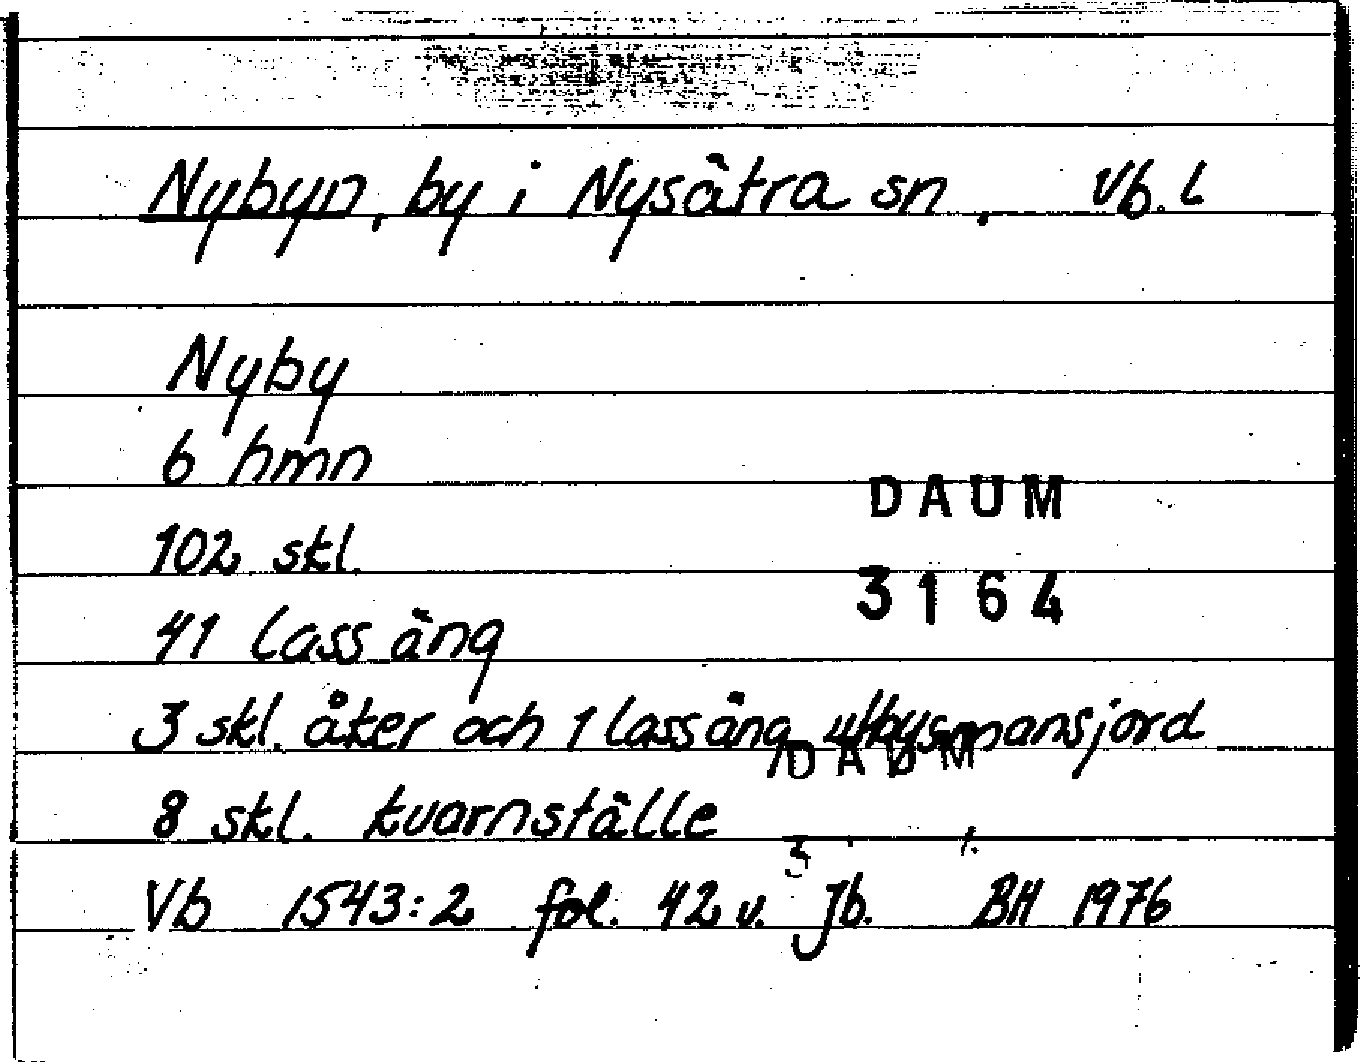 Nybyn, by i Nysätra sn. Vb. L
Nyby
6 hmn
DAUM
102 skl.
3164
41 lass äng
3 skl. åker och 1 lass äng utbysmansjord
DAUM
8 skl. kvarnställe
Vb 1543:2 fol. 42 v. Jb. BH 1976